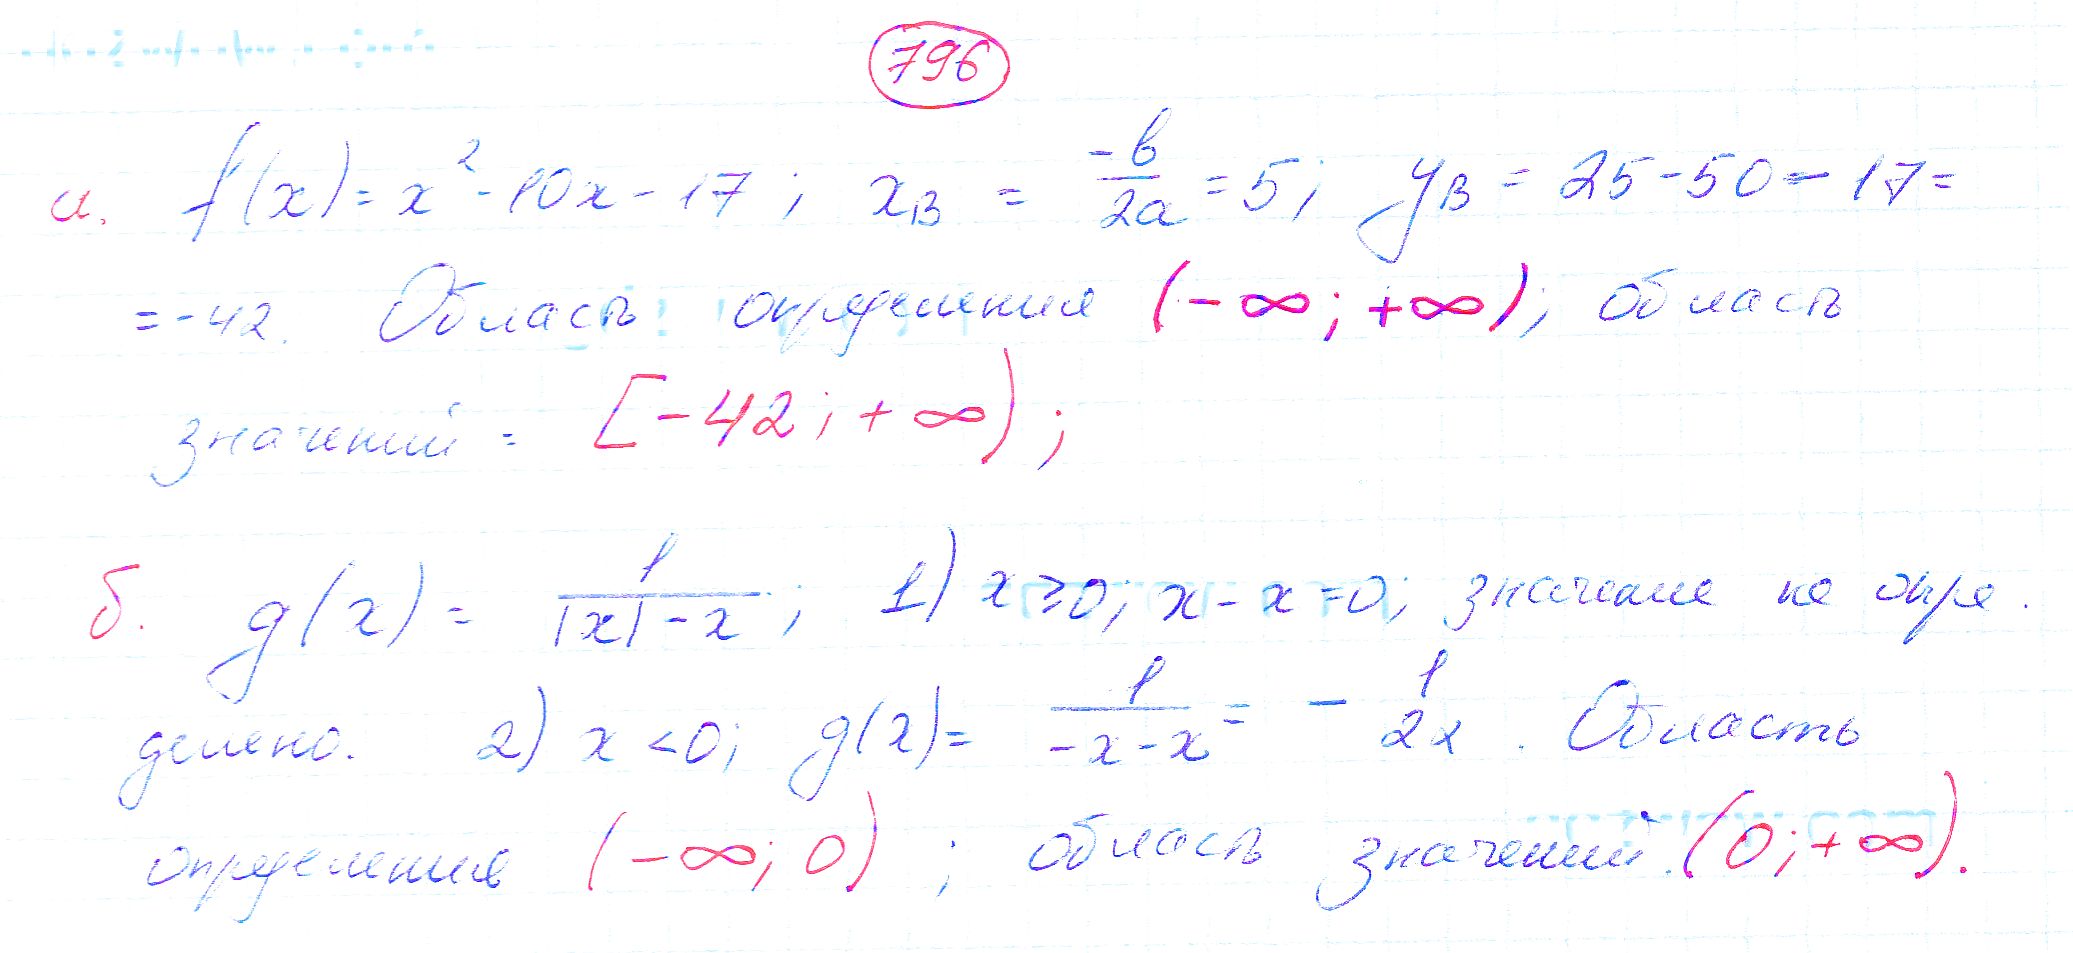 796
а. f(x) = x² - 10x - 17 ; xв = -b/2a = 5; yв = 25 - 50 - 17 =
= -42. Область определения (-∞; +∞); область
значений = [-42; +∞) ;
б. g(x) = 1/(|x| - x) ; 1) x ≥ 0; x - x = 0; значение не опре-
делено. 2) x < 0; g(x) = 1/(-x - x) = - 1/2x . Область
определения (-∞; 0) ; область значений (0; +∞).